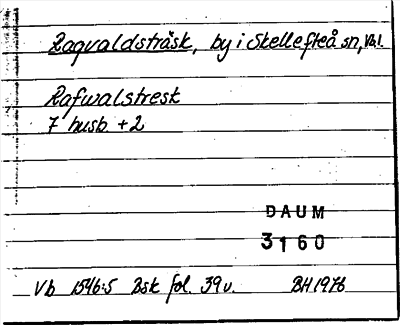 Ragvaldsträsk, by i Skellefteå sn, Vbl.
Rafwalstresk
7 husb. + 2
DAUM
3160
Vb 1546:5 Bsk fol. 39v. BH 1976